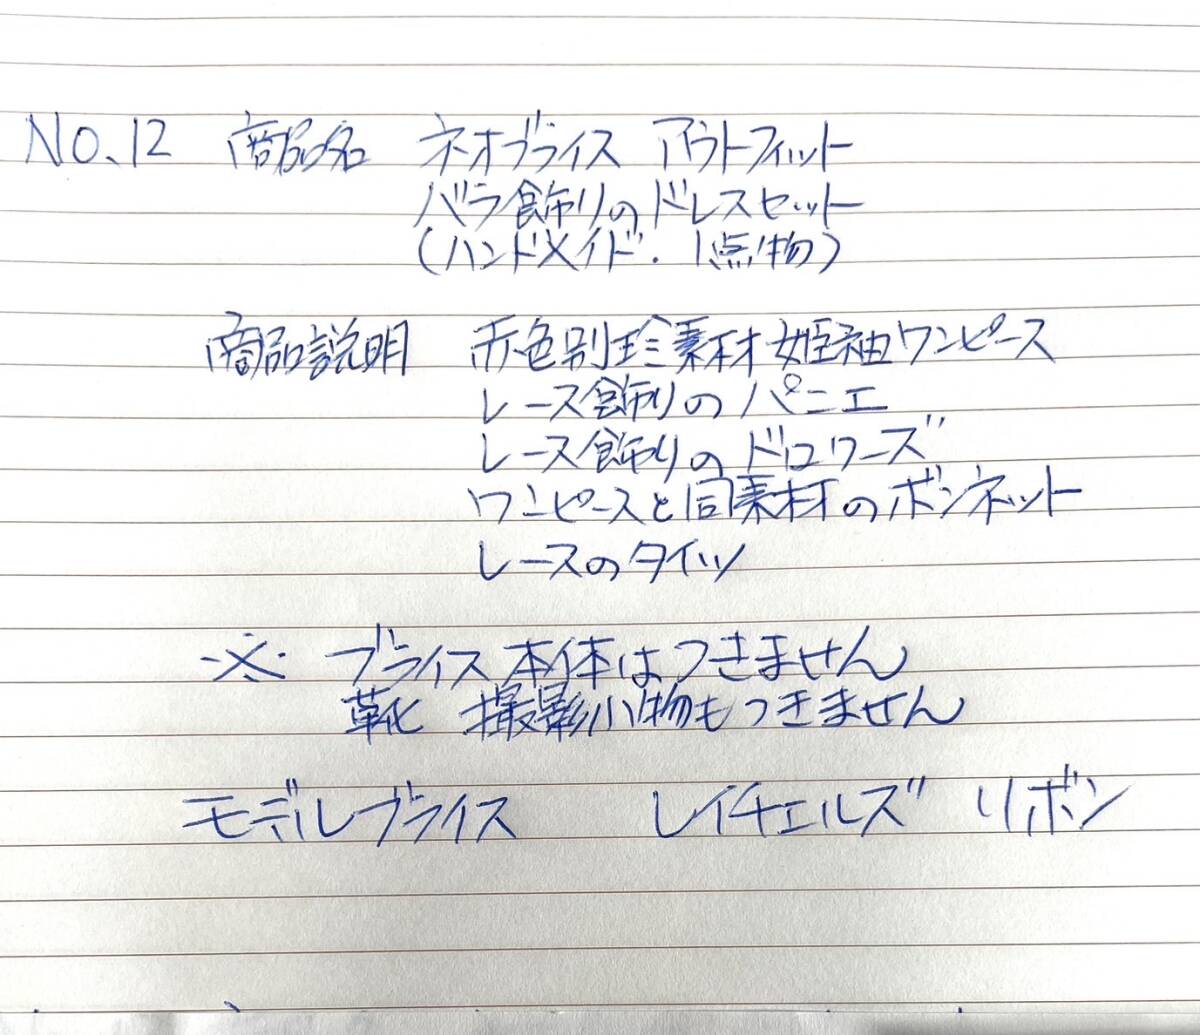 NO.12 商品名 ネオブライス アウトフィット
バラ飾りのドレスセット
(ハンドメイド・1点物)
商品説明 赤色別珍素材姫袖ワンピース
レース飾りのパニエ
レース飾りのドロワーズ
ワンピースと同素材のボンネット
レースのタイツ
※ ブライス本体はつきません
靴 撮影小物もつきません
モデルブライス レイチェルズ リボン